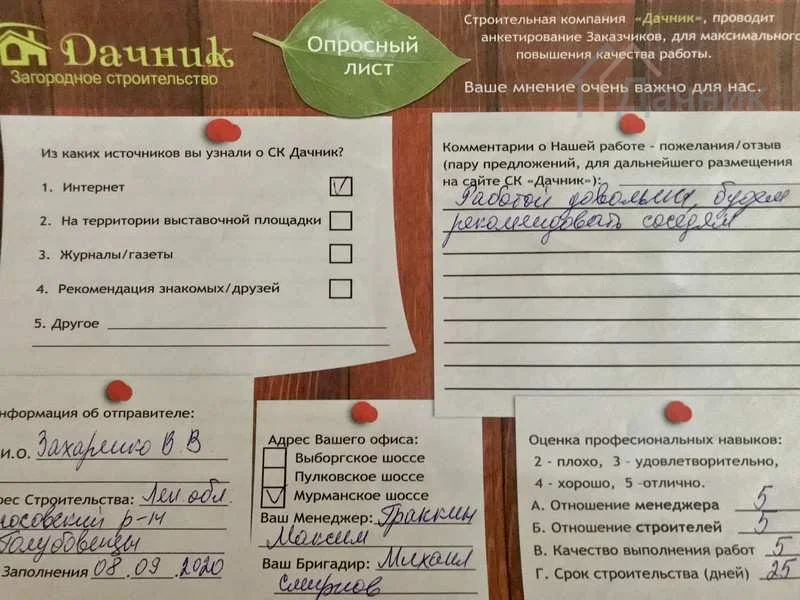 Дачник
Загородное строительство
Опросный
лист
Строительная компания «Дачник», проводит
анкетирование Заказчиков, для максимального
повышения качества работы.
Ваше мнение очень важно для нас.
Дачник
Из каких источников вы узнали о СК Дачник?
1. Интернет
2. На территории выставочной площадки
3. Журналы/газеты
4. Рекомендация знакомых/друзей
5. Другое
Комментарии о Нашей работе - пожелания/отзыв
(пару предложений, для дальнейшего размещения
на сайте СК «Дачник»):
Работой довольны, будем
рекомендовать соседям
нформация об отправителе:
И.О. Захаренко В. В.
рес Строительства: Лен. обл.
мосовский р-н
Голубовицы
Заполнения 08.09.2020
Адрес Вашего офиса:
Выборгское шоссе
Пулковское шоссе
Мурманское шоссе
Ваш Менеджер: Траккин
Максим
Ваш Бригадир: Михаил
Смирнов
Оценка професиональных навыков:
2 - плохо, 3 - удовлетворительно,
4 - хорошо, 5 -отлично.
А. Отношение менеджера 5
Б. Отношение строителей 5
В. Качество выполнения работ 5
Г. Срок строительства (дней) 25